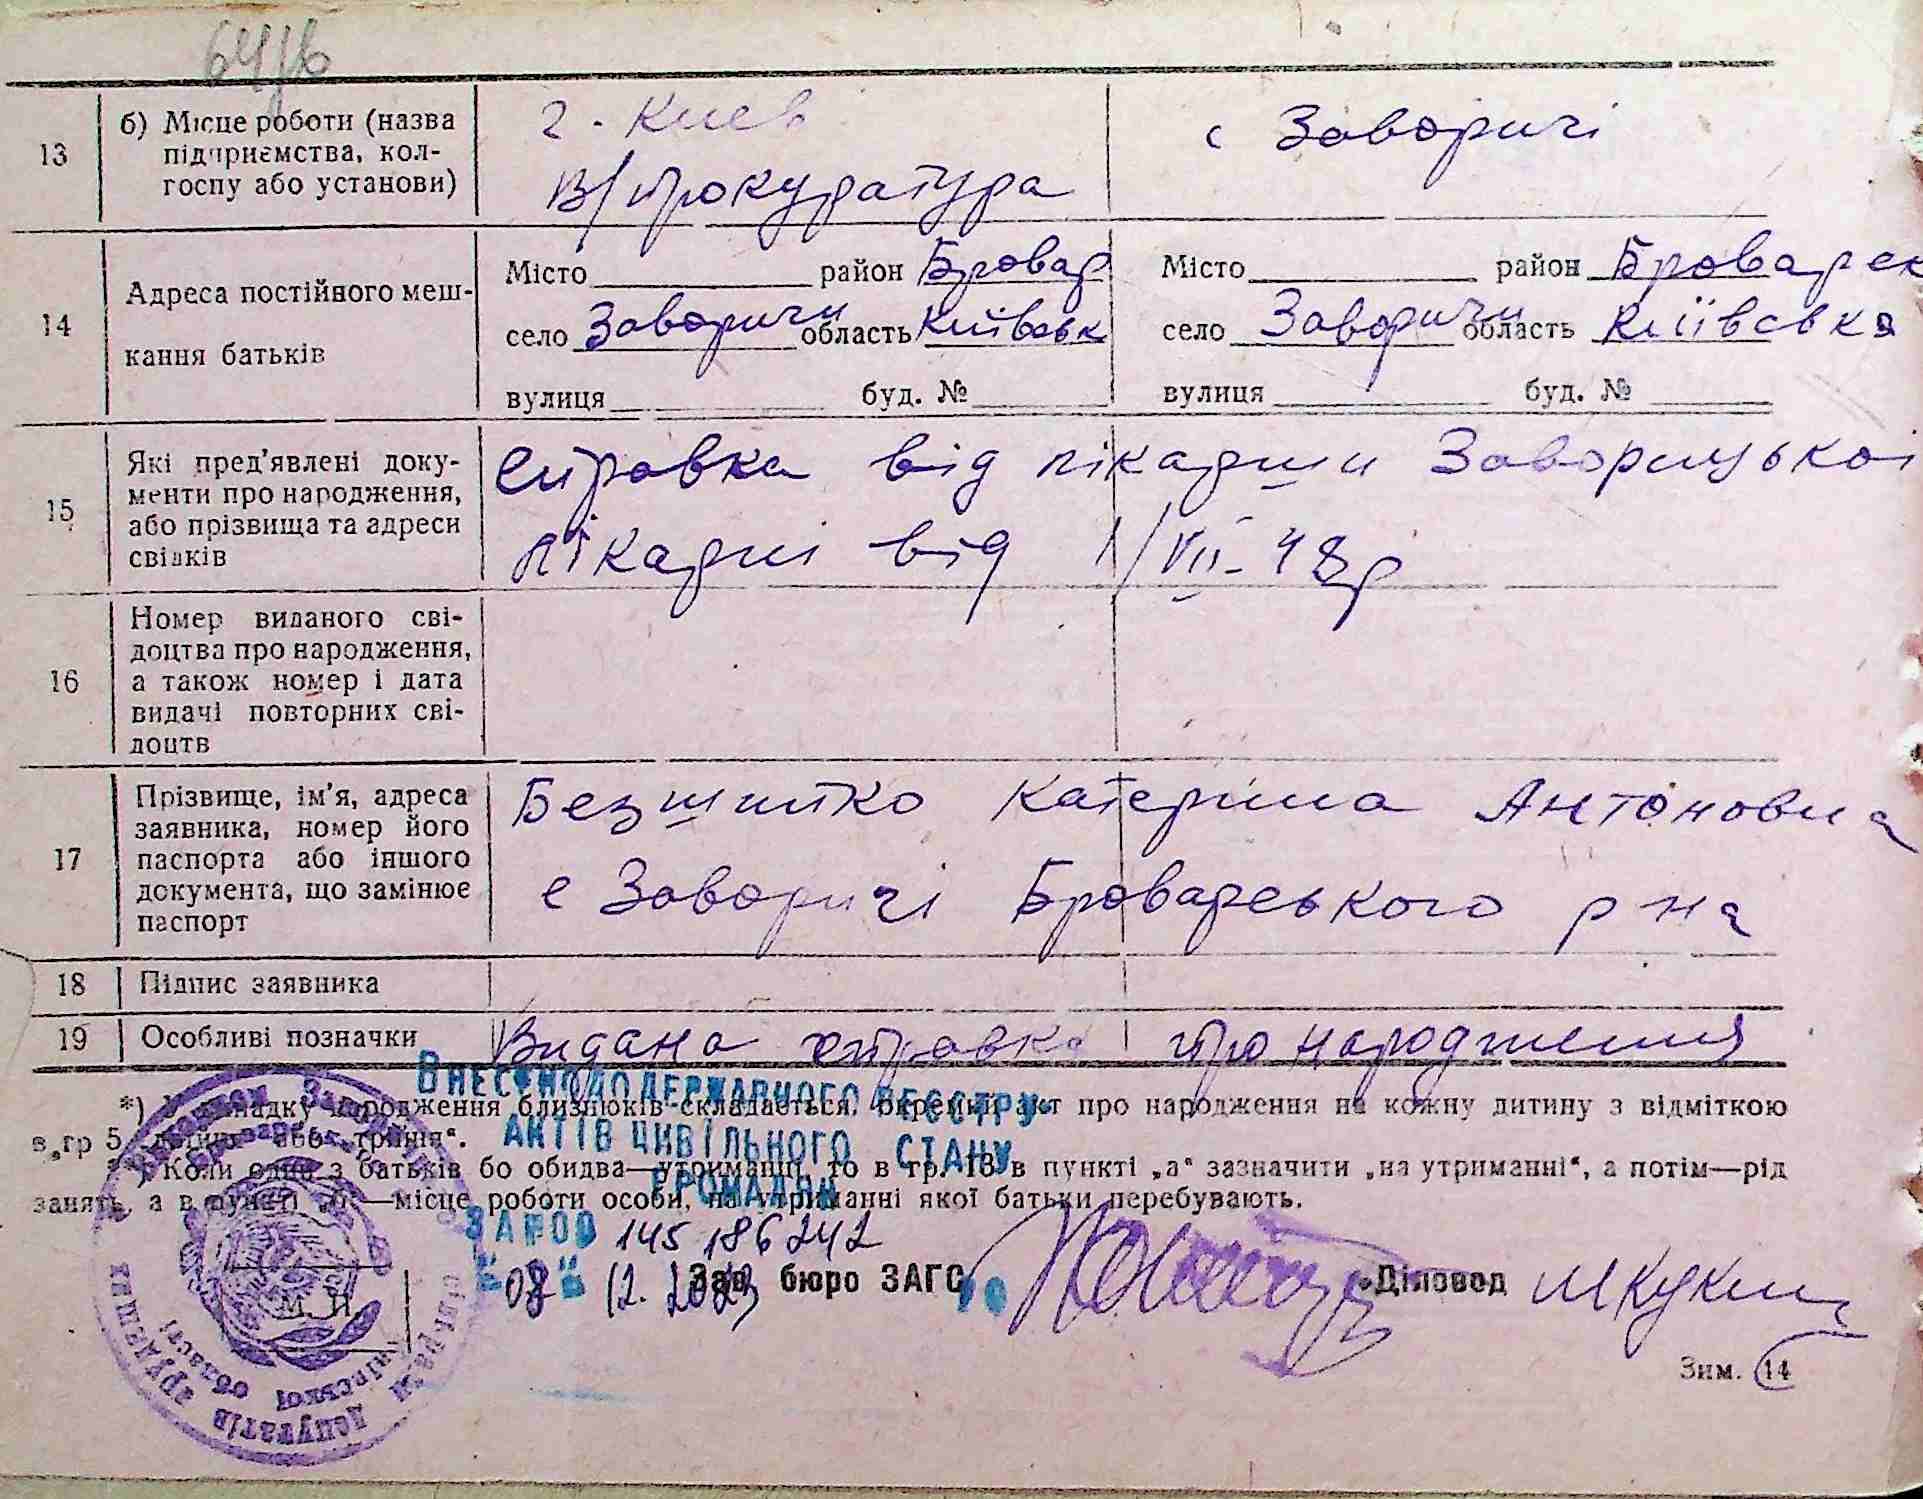 13
б) Місце роботи (назва підприємства, колгоспу або установи)
г. Киев
в/прокуратура
с Заворичі
14
Адреса постійного мешкання батьків
Місто район Бровар
село Заворичи область Київськ
вулиця буд. №
Місто район Броварск
село Заворичи область Київська
вулиця буд. №
15
Які пред'явлені документи про народження, або прізвища та адреси свідків
Справка від лікарши Заворицької
лікарні від 1/VII-48р
16
Номер виданого свідоцтва про народження, а також номер і дата видачі повторних свідоцтв
17
Прізвище, ім'я, адреса заявника, номер його паспорта або іншого документа, що замінює паспорт
Безшийко Катерина Антоновна
с Заворичі Броварського р на
18
Підпис заявника
19
Особливі позначки
Видана справка про народження
ВНЕСЕНО ДО ДЕРЖАВНОГО РЕЄСТРУ
АКТІВ ЦИВІЛЬНОГО СТАНУ
ГРОМАДЯН
*) У випадку народження близнюків складається окремий акт про народження на кожну дитину з відміткою
в „гр 5 або трійня“.
**) Коли один з батьків бо обидва—утриманні, то в гр. 13 в пункті „а“ зазначити „на утриманні“, а потім—рід
занять, а в пункті „б“—місце роботи особи, на утриманні якої батьки перебувають.
145 186242
12. 2023
Зав. бюро ЗАГС
Діловод
М. П.
депутатів трудящих
області
Зим. 14